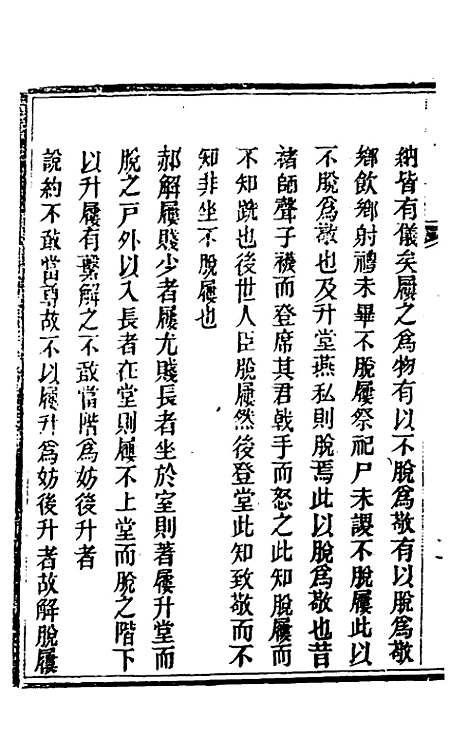 納皆有儀矣屨之爲物有以不脫爲敬有以脫爲敬
鄉飲鄉射禮未畢不脫屨祭祀尸未謖不脫屨此以
不脫爲敬也及升堂燕私則脫焉此以脫爲敬也昔
禇師聲子襪而登席其君戟手而怒之此知脫屨而
不知跣也後世人臣脫屨然後登堂此知致敬而不
知非坐不脫屨也
郝解屨賤少者屨尤賤長者坐於室則著屨升堂而
脫之戸外以入長者在堂則屨不上堂而脫之階下
以升屨有繫解之不敢當階爲妨後升者
說約不敢當尊故不以屨升爲妨後升者故解脫屨